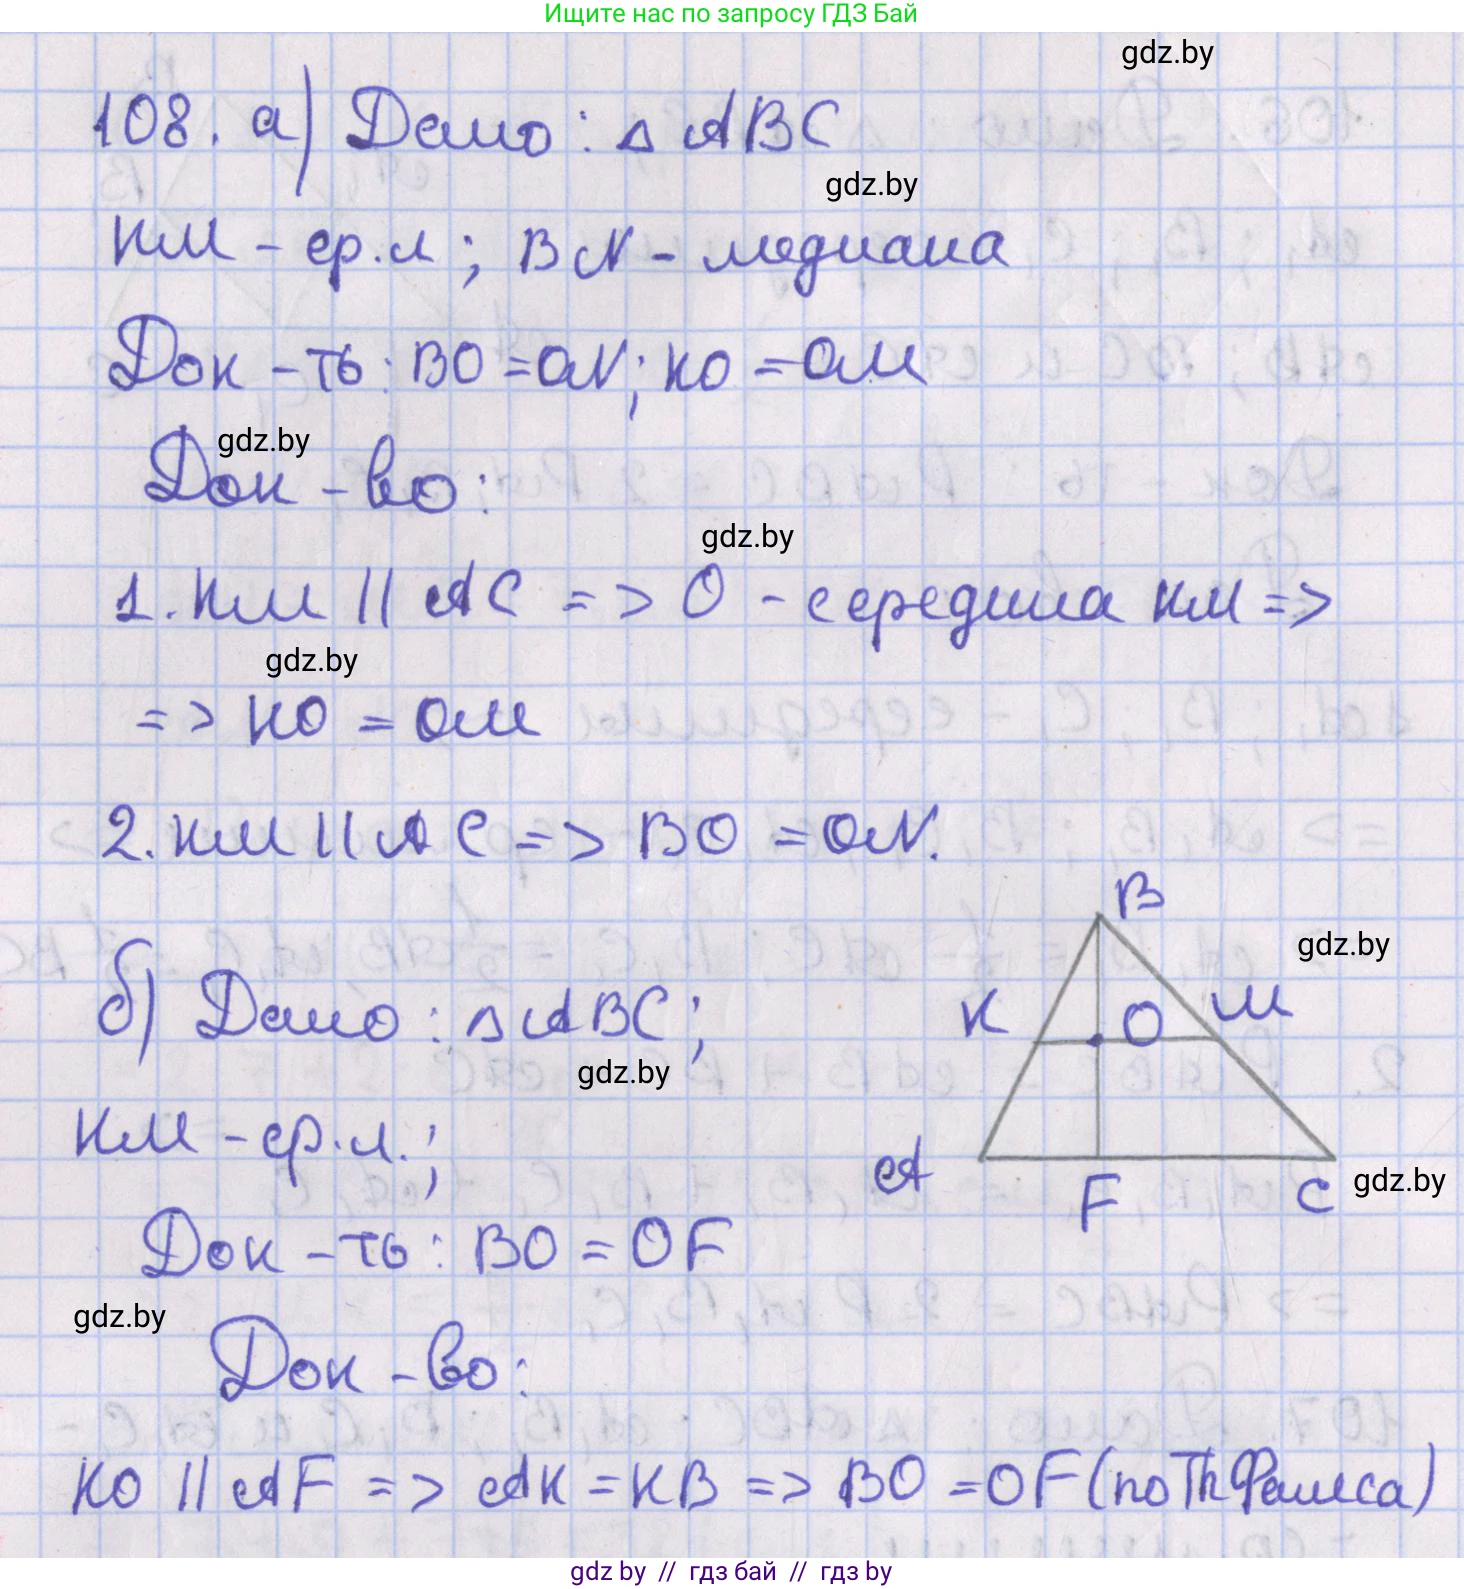 Ищите нас по запросу ГДЗ Бай
gdz.by
108. а) Дано: △ ABC
gdz.by
KM - ср.л; BN - медиана
Док-ть: BO = ON; KO = OM
gdz.by
Док-во:
gdz.by
1. KM || AC => O - середина KM =>
gdz.by
=> KO = OM
2. KM || AC => BO = ON.
B
gdz.by
K O M
б) Дано: △ ABC;
gdz.by
KM - ср.л.;
A F C gdz.by
Док-ть: BO = OF
gdz.by
Док-во:
KO || AF => AK = KB => BO = OF (по Th Фалеса)
gdz by // гдз бай // гдз by